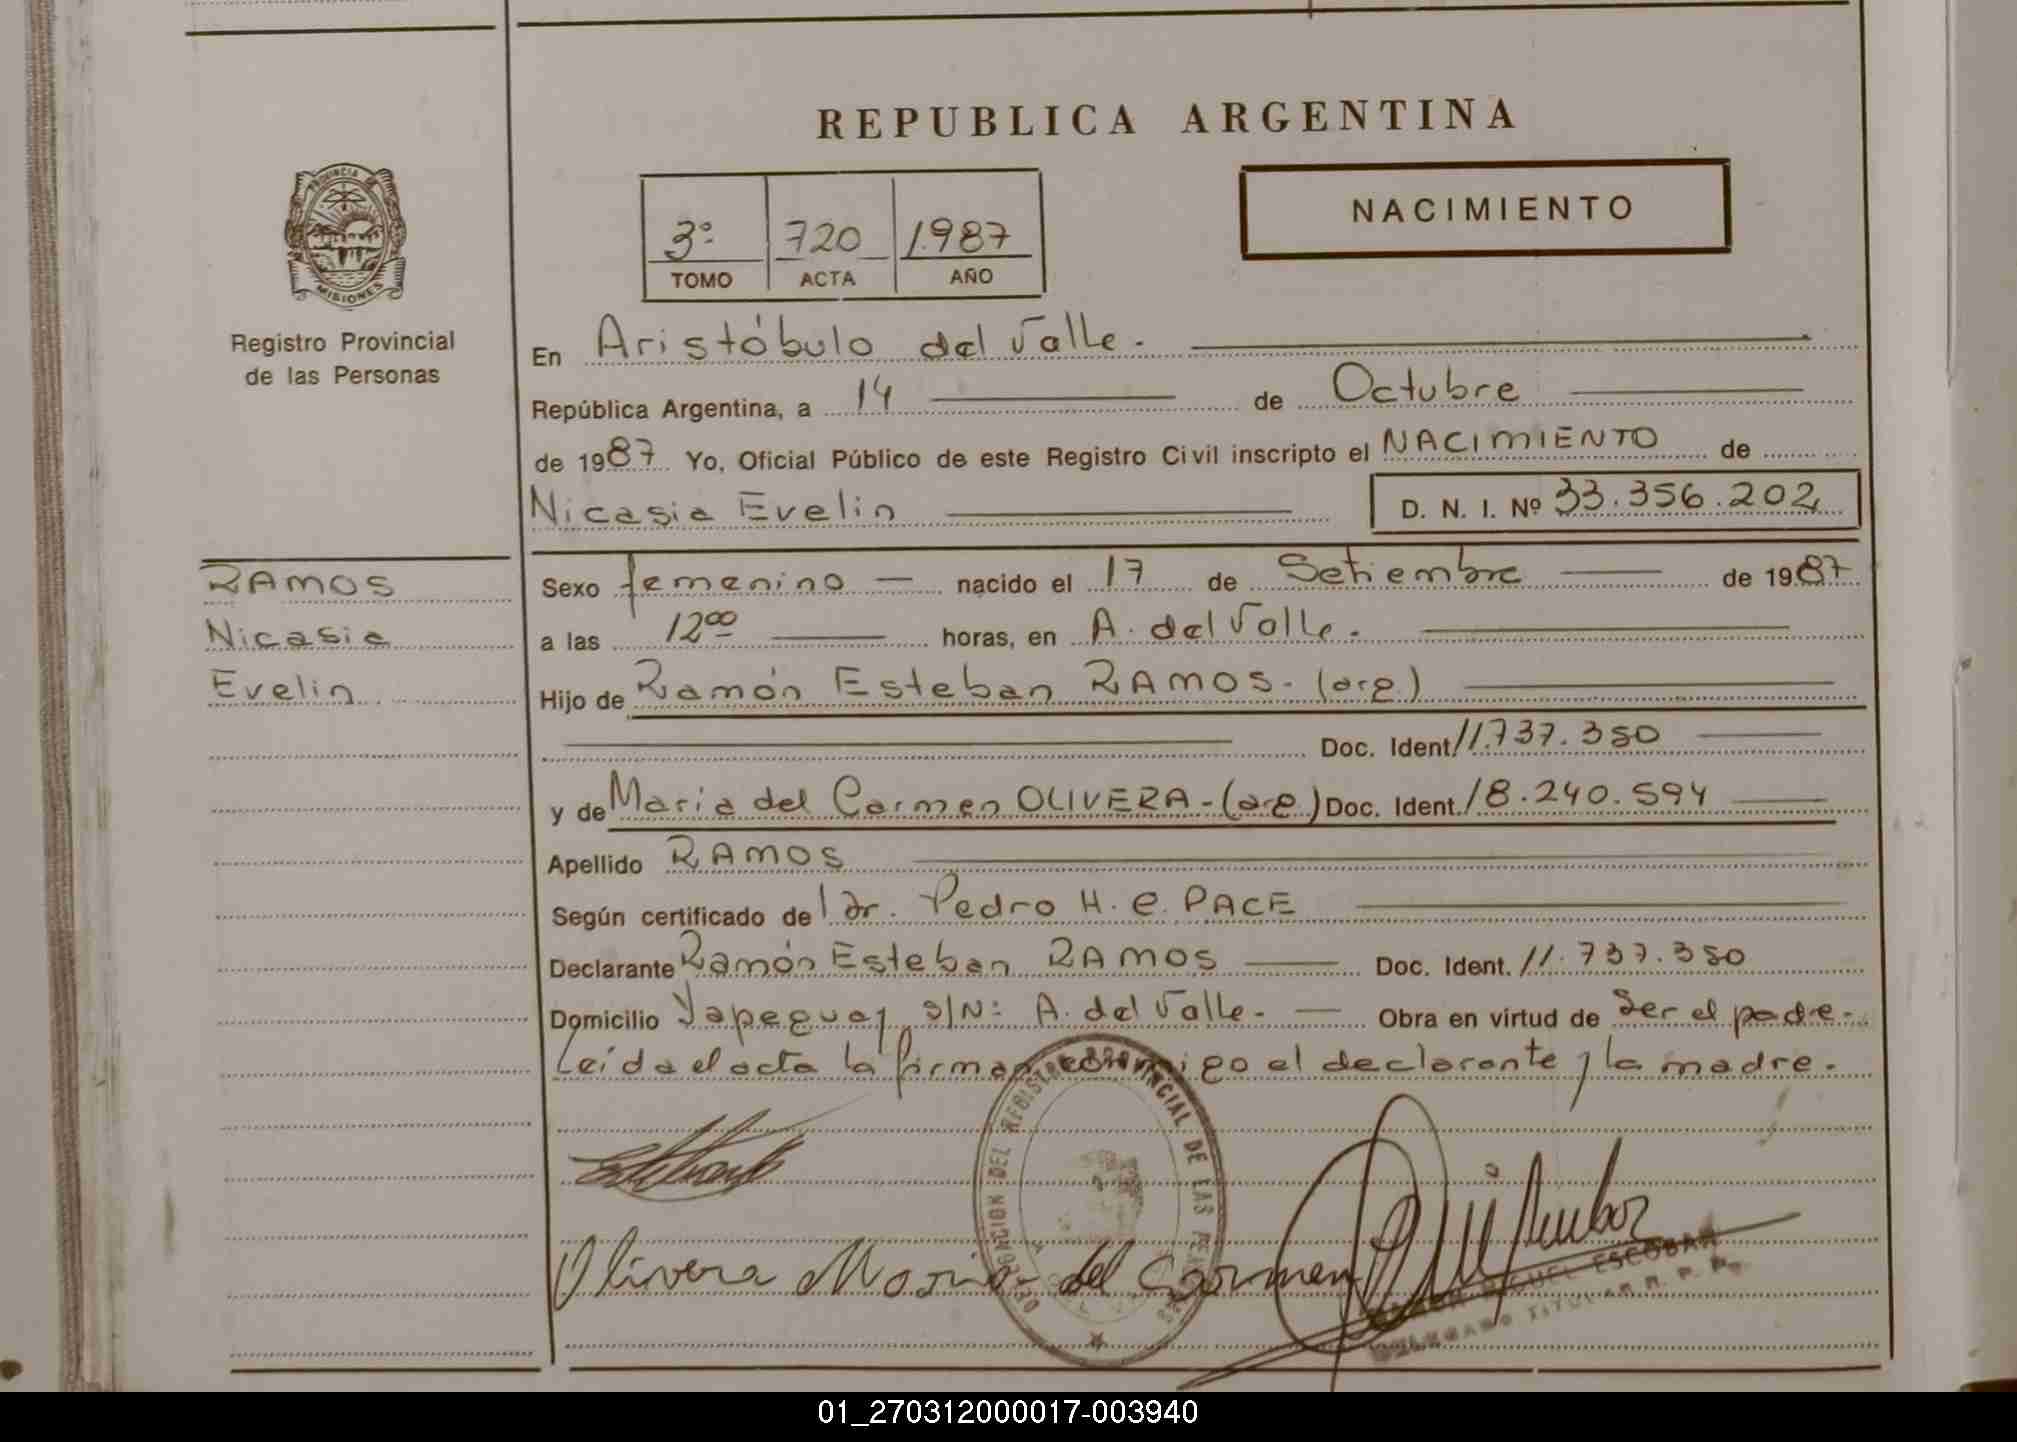 REPUBLICA ARGENTINA
PROVINCIA DE MISIONES
Registro Provincial
de las Personas
3º 720 1.987
TOMO ACTA AÑO
NACIMIENTO
En Aristóbulo del Valle.
República Argentina, a 14 de Octubre
de 1987 Yo, Oficial Público de este Registro Civil inscripto el NACIMIENTO de
Nicasia Evelin D. N. I. Nº 33.356.202
RAMOS
Nicasia
Evelin
Sexo femenino — nacido el 17 de Setiembre de 1987
a las 1200 horas, en A. del Valle.
Hijo de Ramón Esteban RAMOS - (arg.)
Doc. Ident. 11.737.350
y de Maria del Carmen OLIVERA - (arg.) Doc. Ident. 18.240.594
Apellido RAMOS
Según certificado de Dr. Pedro H. C. PACE
Declarante Ramón Esteban RAMOS Doc. Ident. 11.737.350
Domicilio Yapeyuay s/Nº A. del Valle. — Obra en virtud de Ser el padre.
Leída el acta la firman conmigo el declarante y la madre.
DELEGACION DEL REGISTRO PROVINCIAL DE LAS PERSONAS
Olivera Maria del Carmen
MIGUEL ESCOBAR
DELEGADO TITULAR R. P. P.
01_270312000017-003940